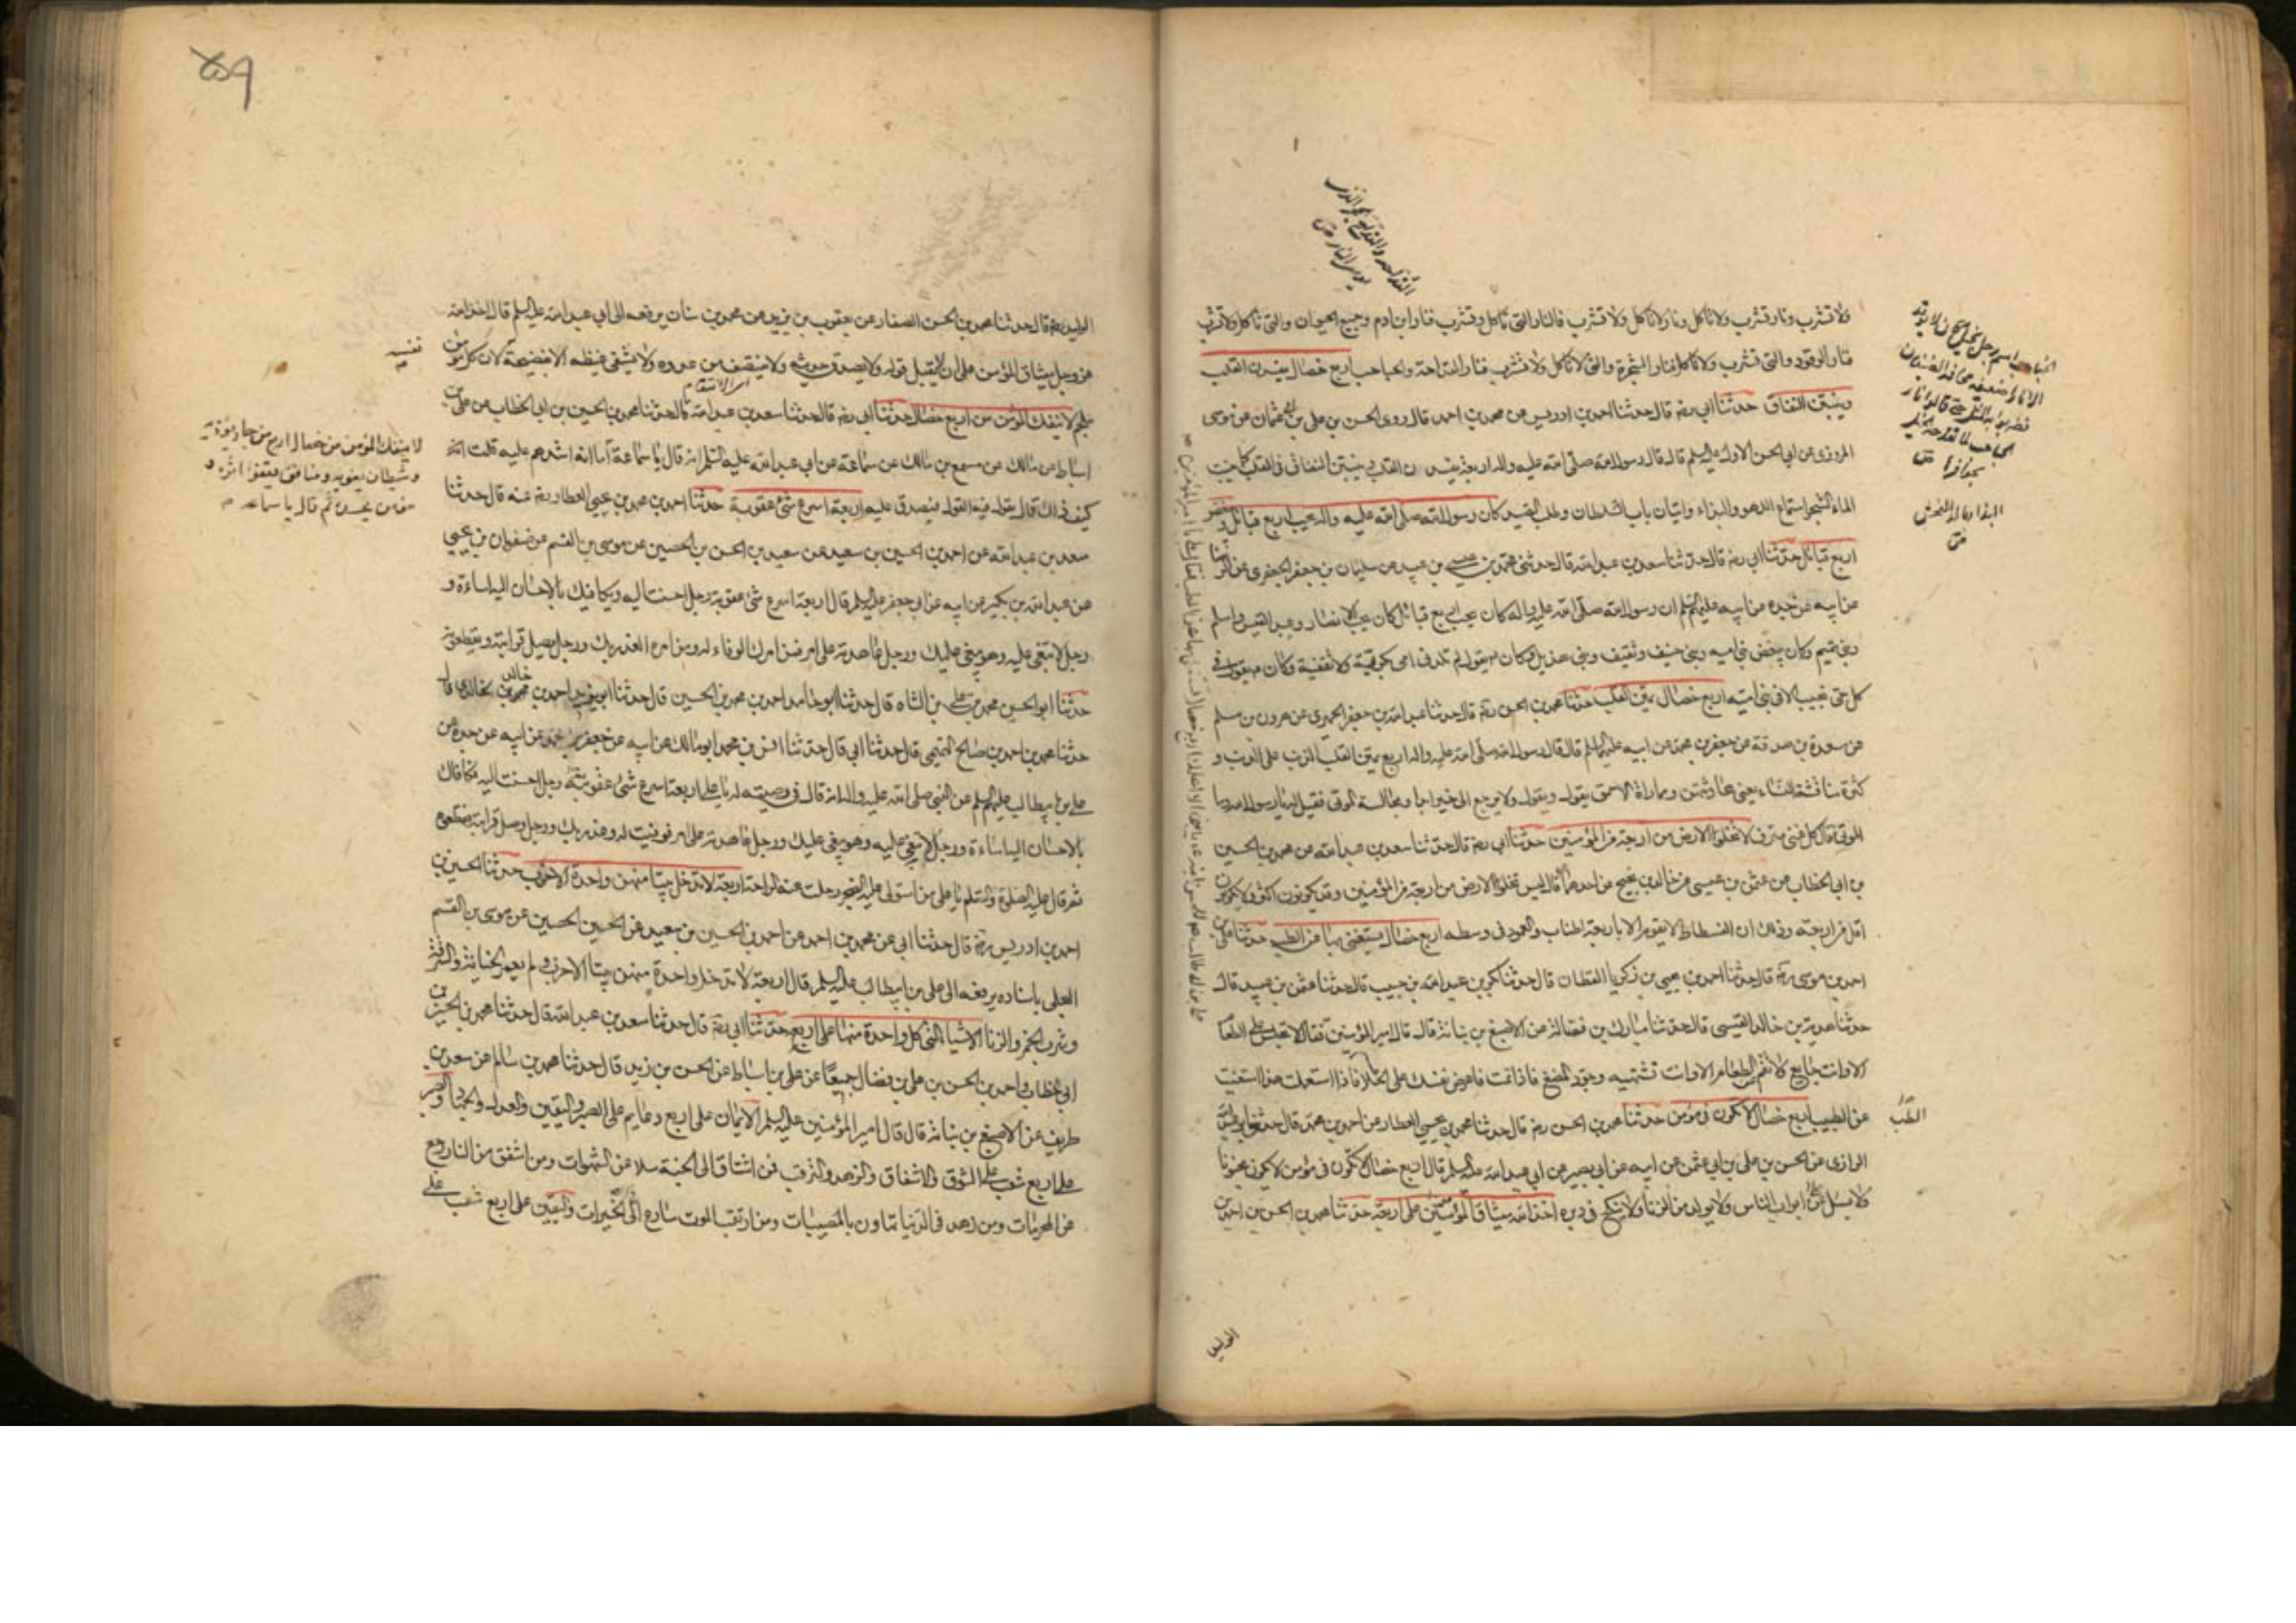 ولا تشرب ونار تشرب ولا تاكل ونار لا تاكل ولا تشرب فالنار التى تاكل وتشرب فنار ابن ادم وجميع الحيوان والتى تاكل ولا تشرب
فنار الوقود والتى تشرب ولا تاكل فنار الشجرة والتى لا تاكل ولا تشرب فنار القداحة والحباحب اربع خصال يفسدن القلب
وينبتن النفاق حدثنا ابي رضه قال حدثنا احمد بن ادريس عن محمد بن احمد قال روى الحسن بن علي بن ابي عثمان عن موسى
المروزى عن ابي الحسن الاول عليه السلم قال قال رسول الله صلى الله عليه واله اربع يفسدن القلب وينبتن النفاق فى القلب كما ينبت
الماء الشجر استماع اللهو والبذاء واتيان باب السلطان وطلب الصيد كان رسول الله صلى الله عليه واله يحب اربع قبائل ويبغض
اربع قبائل حدثنا ابي رضه قال حدثنا سعد بن عبد الله قال حدثنى محمد بن عيسى بن عبيد عن سليمان بن جعفر الجعفرى عن الرضا
عن ابيه عن جده عن ابيه عليهم السلم ان رسول الله صلى الله عليه واله كان يحب اربع قبائل كان يحب الانصار وعبد القيس واسلم
وبنى تميم وكان يبغض بنى اميه وبنى حنيف وثقيف وبنى هذيل وكان ع يقول لم تلدنى امى بكرية ولا ثقفية وكان ع يقول فى
كل حى نجيب الا فى بنى اميه اربع خصال يمتن القلب حدثنا محمد بن الحسن رضه قال حدثنا عبد الله بن جعفر الحميرى عن هرون بن مسلم
عن مسعدة بن صدقة عن جعفر بن محمد عن ابيه عليهما السلم قال قال رسول الله صلى الله عليه واله اربع يمتن القلب الذنب على الذنب و
كثرة مناقشة النساء يعنى محادثتهن ومماراة الاحمق يقول وتقول ولا يرجع الى خير ابدا ومجالسة الموتى فقيل له يا رسول الله وما
الموتى قال كل غنى مترف لا تخلوا الارض من اربعة من المؤمنين حدثنا ابي رضه قال حدثنا سعد بن عبد الله عن محمد بن الحسين
بن ابي الخطاب عن عثمن بن عيسى عن خالد بن نجيح عن احدهما قال ليس تخلوا الارض من اربعة من المؤمنين وقد يكونون اكثر ولا يكونون
اقل من اربعة وذلك ان الفسطاط لا يقوم الا باربعة اطناب والعمود فى وسطه اربع خصال يستغنى بها عن الطب حدثنا على بن
احمد بن موسى رضه قال حدثنا احمد بن يحيى بن زكريا القطان قال حدثنا بكر بن عبد الله بن حبيب قال حدثنا عثمن بن عبيد قال
حدثنا هدبة بن خالد القيسى قال حدثنا مبارك بن فضالة عن الاصبغ بن نباتة قال قال امير المؤمنين ع لا تجلس على الطعام
الا وانت جايع ولا تقم عن الطعام الا وانت تشتهيه وجود المضغ فاذا نمت فاعرض نفسك على الخلا فاذا استعملت هذا استغنيت
عن الطبيب اربع خصال لا تكون فى مؤمن حدثنا محمد بن الحسن رضه قال حدثنا محمد بن يحيى العطار عن احمد بن محمد قال حدثنى ابو عبد الله
الرازى عن الحسن بن على بن ابي عثمن عن ابيه عن ابي بصير عن ابي عبد الله عليه السلم قال اربع خصال لا تكون فى مؤمن لا يكون مجنونا
ولا يسئل على ابواب الناس ولا يولد من الزنا ولا ينكح فى دبره اخذ الله ميثاق المؤمنين على اربعة حدثنا محمد بن الحسن بن احمد بن
الوليد
البذاء الفحش
الطب
الوليد رضه قال حدثنا محمد بن الحسن الصفار عن يعقوب بن يزيد عن محمد بن سنان يرفعه الى ابي عبد الله عليه السلم قال اخذ الله
عز وجل ميثاق المؤمن على ان لا يقبل قوله ولا يصدق حديثه ولا ينتصف من عدوه ولا يشفى غيظه الا بفضيحة لان كل مؤمن
ملجم لا ينفك المؤمن من اربع خصال حدثنا ابي رضه قال حدثنا سعد بن عبد الله قال حدثنا محمد بن الحسين بن ابي الخطاب عن علي بن
اسباط عن مالك عن مسمع بن مالك عن سماعة عن ابي عبد الله عليه السلم انه قال يا سماعة اما انه اشدهم عليه قلت
كيف ذاك قال يقول فيه القول فيصدق عليه اربعة اسرع شئ عقوبة حدثنا احمد بن محمد بن يحيى العطار رضى عنه قال حدثنا
سعد بن عبد الله عن احمد بن الحسين بن سعيد عن سعيد بن الحسن بن الحصين عن موسى بن القسم عن صفوان بن يحيى
عن عبد الله بن بكير عن ابيه عن ابي جعفر عليه السلم قال اربعة اسرع شئ عقوبة رجل احسنت اليه ويكافيك بالاحسان اليه اساءة و
رجل لا تبغى عليه وهو يبغى عليك ورجل عاهدته على امر فمن امرك الوفاء له ومن امره الغدر بك ورجل يصل قرابته ويقطعونه
حدثنا ابو الحسن محمد بن على بن الشاه قال حدثنا ابو حامد احمد بن محمد بن الحسين قال حدثنا ابو يزيد احمد بن خالد الخالدى قال
حدثنا محمد بن احمد بن صالح التميمى قال حدثنا ابى قال حدثنا انس بن محمد ابو مالك عن ابيه عن جعفر بن محمد عن ابيه عن جده عن
على بن ابيطالب عليهم السلم عن النبى صلى الله عليه واله انه قال فى وصيته له يا على اربعة اسرع شئ عقوبة رجل احسنت اليه فكافاك
بالاحسان اليه اساءة ورجل لا تبغى عليه وهو يبغى عليك ورجل عاهدته على امر فوفيت له وغدر بك ورجل وصل قرابته فقطعوه
ثم قال عليه الصلوة والسلم يا على من استولى عليه الضجر رحلت عنه الراحة اربعة لا تدخل بيتا منهن واحدة الا خرب حدثنا الحسين بن
احمد بن ادريس رضه قال حدثنا ابى عن محمد بن احمد عن احمد بن الحسين بن سعيد عن الحسين الحصين عن موسى بن القسم
البجلى باسناده يرفعه الى على بن ابيطالب عليه السلم قال اربعة لا تدخل واحدة منهن بيتا الا خرب ولم يعمر الخيانة والسرقة
وشرب الخمر والزنا الاشياء التى كل واحدة منها على اربع حدثنا ابى رضه قال حدثنا سعد بن عبد الله قال حدثنا محمد بن الحسين بن
ابى الخطاب واحمد بن الحسن بن على بن فضال جميعا عن على بن اسباط عن الحسن بن زيد قال حدثنا محمد بن سالم عن سعد بن
طريف عن الاصبغ بن نباتة قال قال امير المؤمنين عليه السلم الايمان على اربع دعايم على الصبر واليقين والعدل والجهاد والصبر
على اربع شعب على الشوق والاشفاق والزهد والترقب فمن اشتاق الى الجنة سلا عن الشهوات ومن اشفق من النار رجع
عن المحرمات ومن زهد فى الدنيا تهاون بالمصيبات ومن ارتقب الموت سارع الى الخيرات واليقين على اربع شعب على
لا ينفك المؤمن من خصال اربع من جار يؤذيه
وشيطان يغويه ومنافق يقفوا اثره و
مؤمن يحسده ثم قال يا سماعه